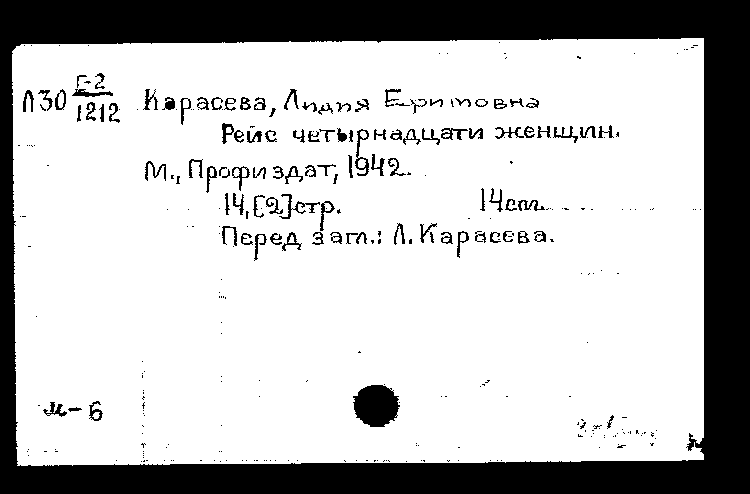 Л30 Е-2/1212 Карасева, Лидия Еримовна
Рейс четырнадцати женщин.
М., Профиздат, 1942.
14,[2]стр. 14см.
Перед загл.: Л. Карасева.
м-6